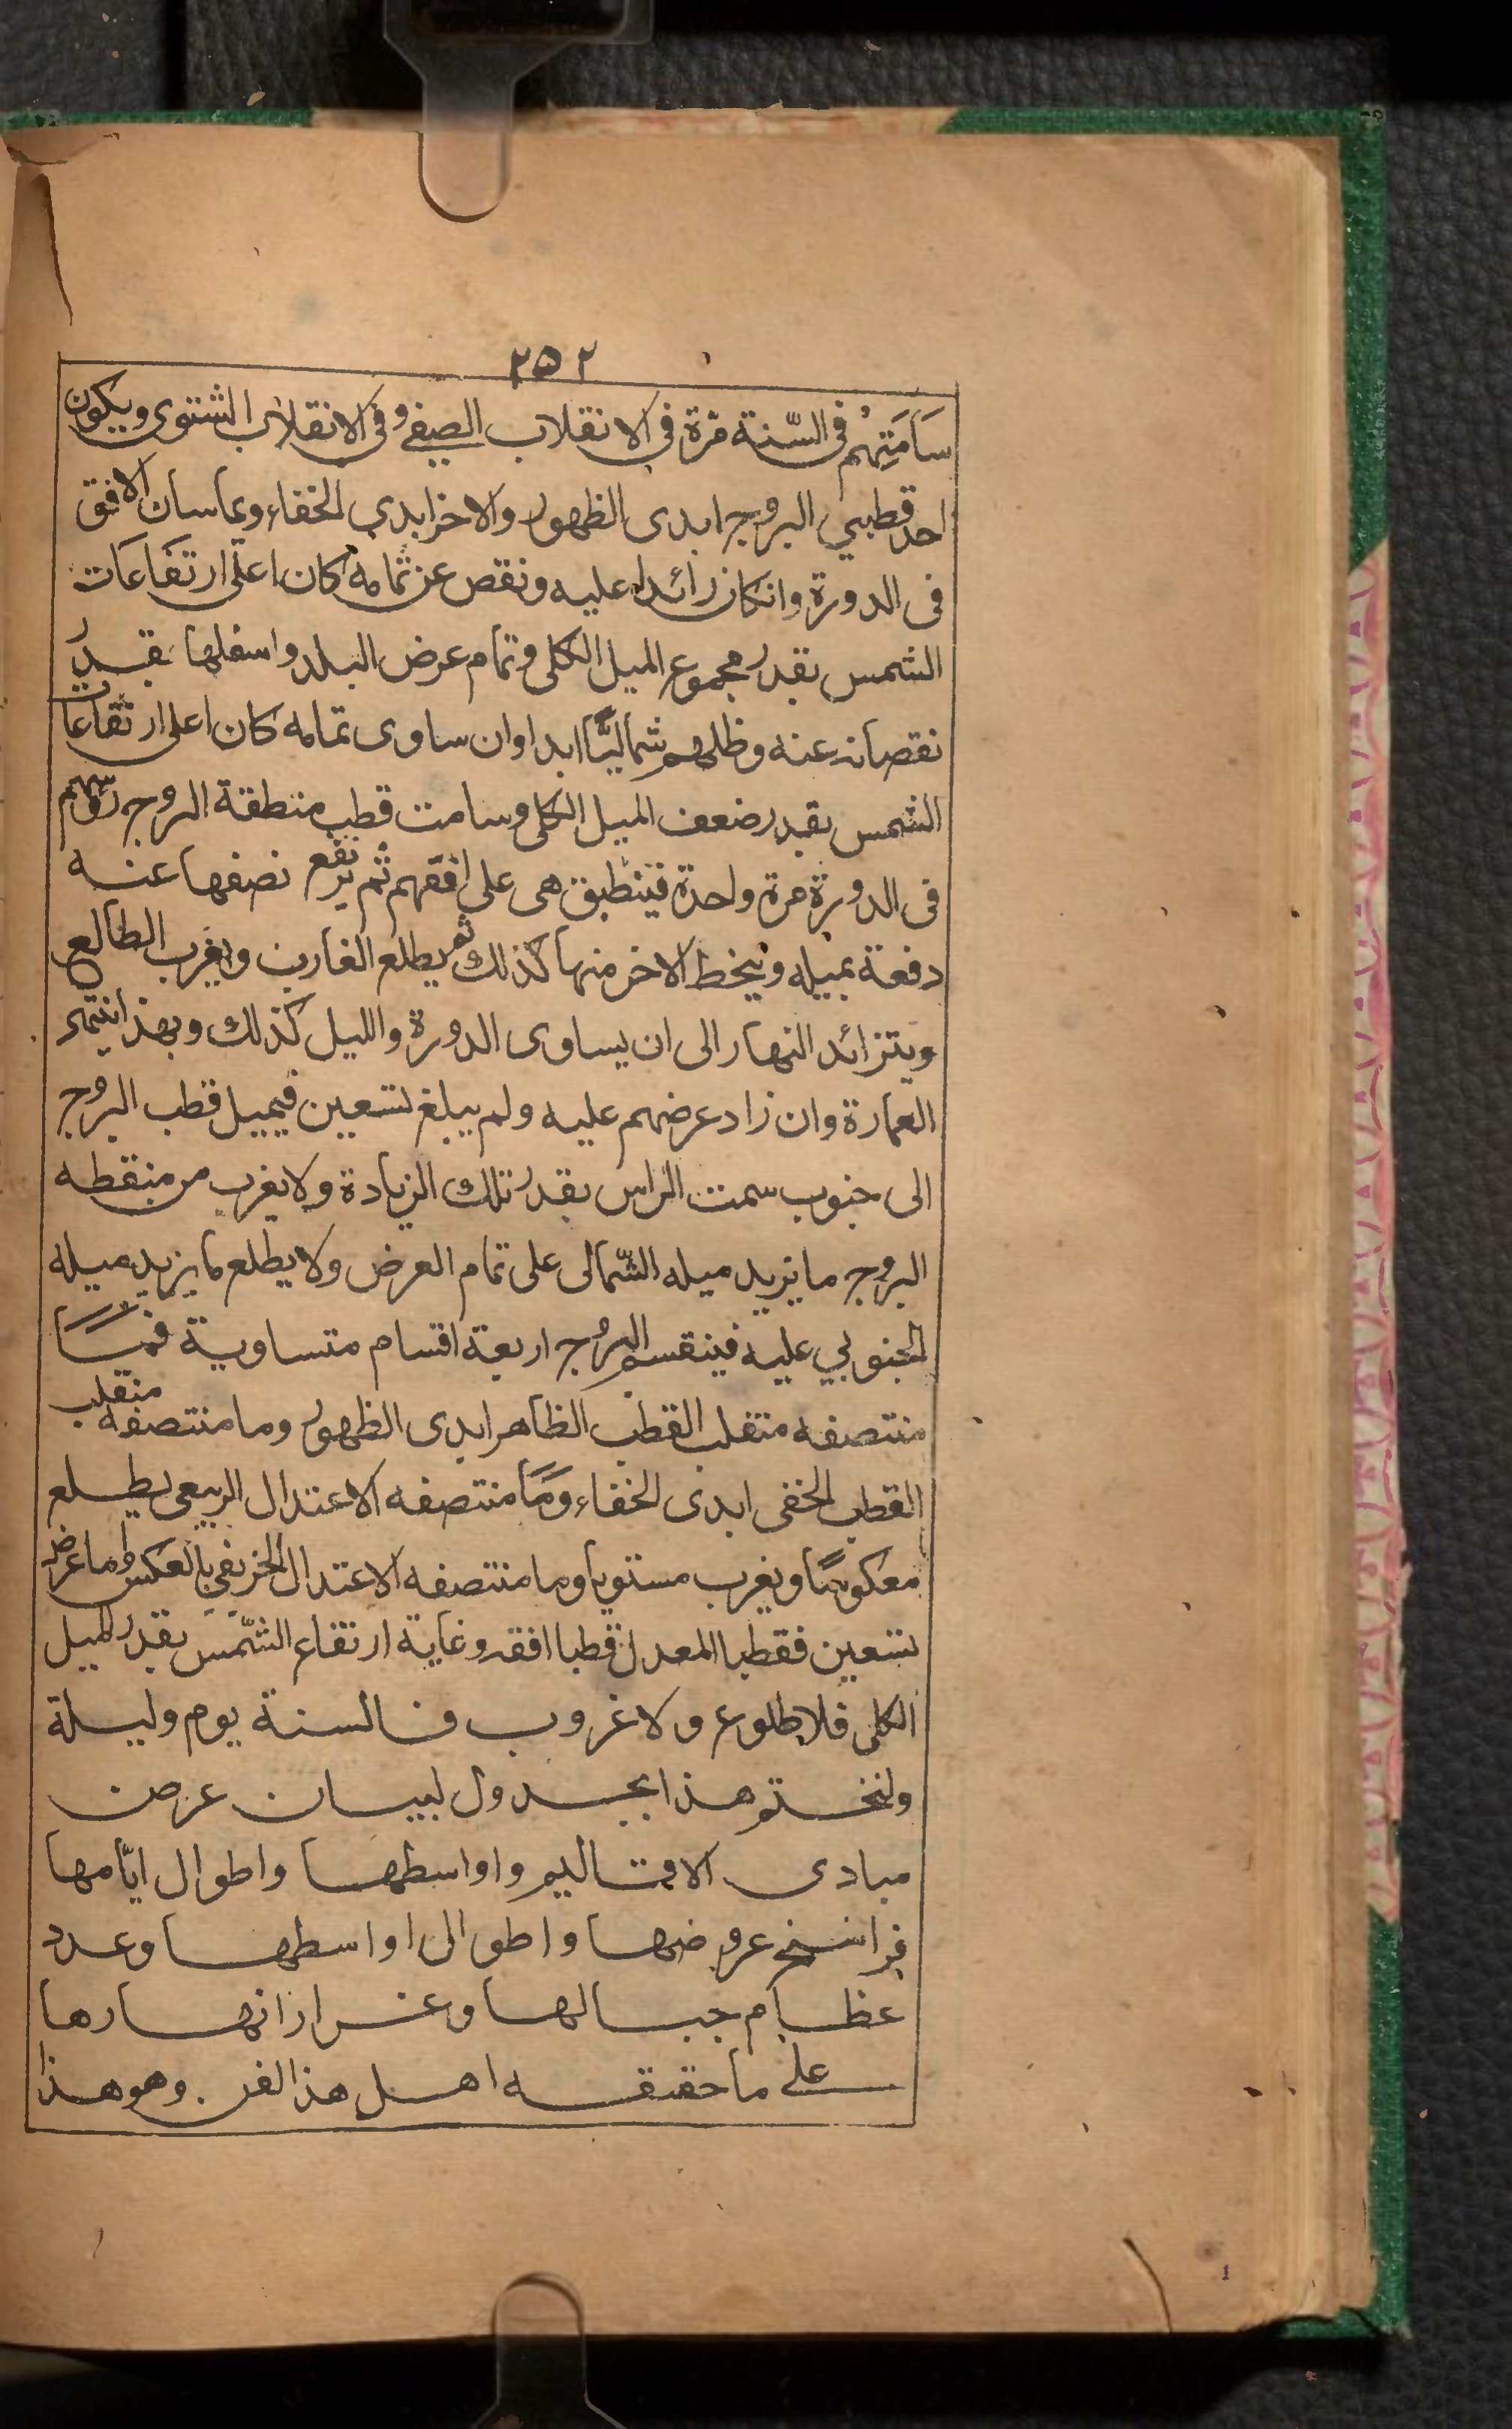 ٢٥٢
سَامَتِهُمْ فى السّنة مرّة فى الانقلاب الصيفى وفى الانقلاب الشتوى ويكون
احد قطبي البروج ابدى الظهور والاخر ابدي الخفاء ويماسان الافق
فى الدورة وانكان زائدا عليه ونقص عن تمامه كان اعلى ارتفاعات
الشمس بقدر مجموع الميل الكلى وتمام عرض البلد واسفلها بقدر
نقصانه عنه وظلهم شماليًّا ابدا وان ساوى تمامه كان اعلى ارتفاعات
الشمس بقدر ضعف الميل الكلى وسامت قطب منطقة البروج رؤسهم
فى الدورة مرة واحدة فينطبق هى على افقهم ثم يرتفع نصفها عنه
دفعة بميله وينخط الاخر منها كذلك ثم يطلع الغارب ويغرب الطالع
ويتزائد النهار الى ان يساوى الدورة والليل كذلك وبهذا ينتهى
العمارة وان زاد عرضهم عليه ولم يبلغ تسعين فيميل قطب البروج
الى جنوب سمت الراس بقدر تلك الزيادة ولا يغرب من منقطه
البروج ما يزيد ميله الشّمالى على تمام العرض ولا يطلع ما يزيد ميله
الجنوبي عليه فينقسم البروج اربعة اقسام متساوية فمَا
منتصفه منقلب القطب الظاهر ابدى الظهور وما منتصفه منقلب
القطب الخفى ابدى الخفاء ومَا منتصفه الاعتدال الربيعى يطلع
معكوسًا ويغرب مستويا وما منتصفه الاعتدال الخريفي بالعكس وما عرضه
تسعين فقطبا المعدل قطبا افقه وغاية ارتفاع الشّمس بقدر الميل
الكلى فلا طلوع ولا غروب فالسنة يوم وليلة
ولنختم هذا بجدول لبيان عرض
مبادى الاقاليم واواسطها واطوال ايّامها
فراسخ عروضها واطوالى اواسطها وعدد
عظام جبالها وغرار انهارها
على ما حققه اهل هذا الفن . وهو هذا